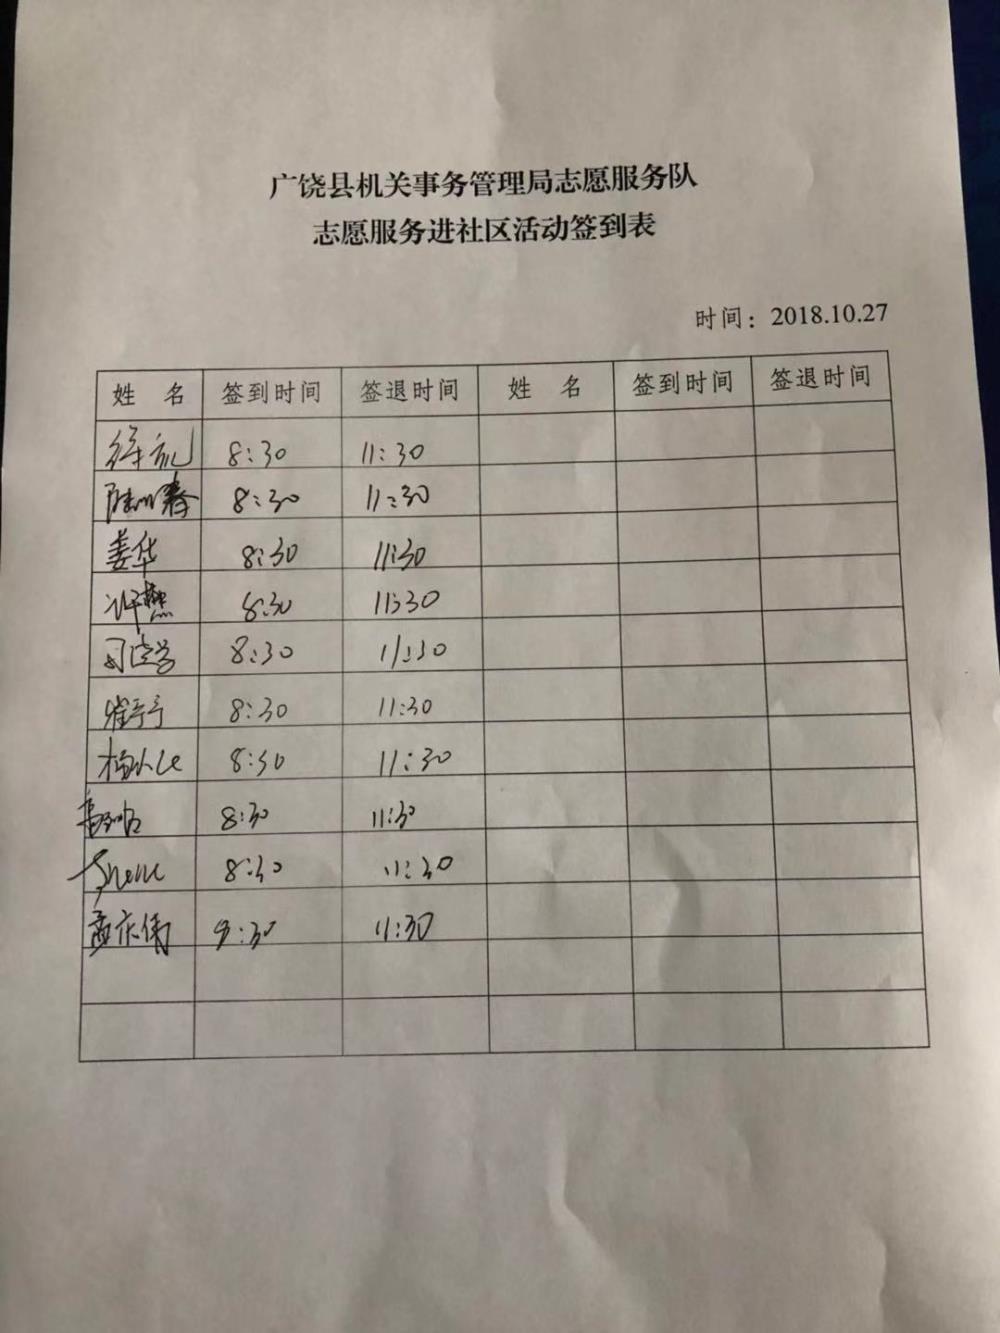 广饶县机关事务管理局志愿服务队
志愿服务进社区活动签到表
时间：2018.10.27
姓 名 签到时间 签退时间 姓 名 签到时间 签退时间
8:30 11:30
8:30 11:30
姜华 8:30 11:30
许燃 8:30 11:30
8:30 11:30
崔亭亭 8:30 11:30
8:30 11:30
8:30 11:30
8:30 11:30
孟庆伟 11:30